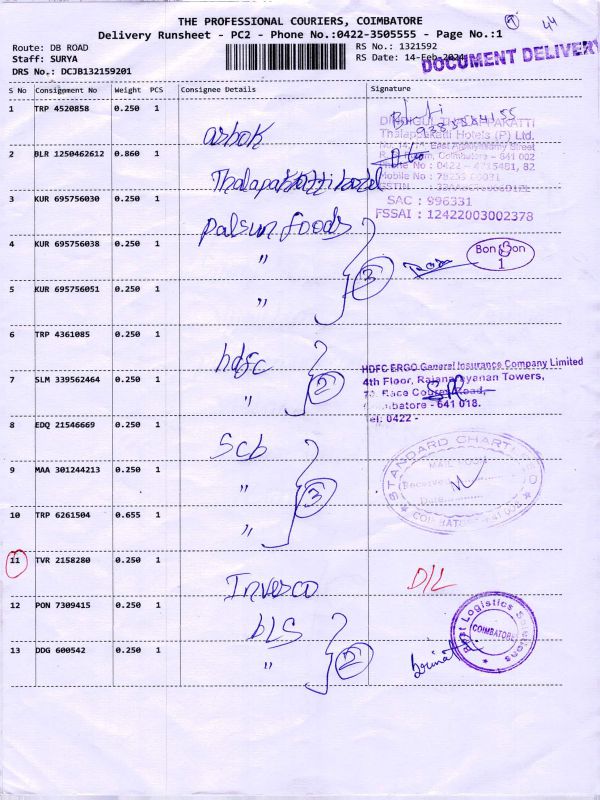 THE PROFESSIONAL COURIERS, COIMBATORE
44
Delivery Runsheet - PC2 - Phone No.:0422-3505555 - Page No.:1
Route: DB ROAD
Staff: SURYA
DRS No.: DCJB132159201
RS No.: 1321592
RS Date: 14-Feb-2024
DOCUMENT DELIVERY
S No Consignment No Weight PCS Consignee Details Signature
1 TRP 4520858 0.250 1 ashok
2 BLR 1250462612 0.860 1 Thalapakatti hotel
Thalappakatti Hotels (P) Ltd.
Coimbatore - 641 002
SAC : 996331
FSSAI : 12422003002378
3 KUR 695756030 0.250 1 palsun foods
4 KUR 695756038 0.250 1 "
3
Bon Bon
1
5 KUR 695756051 0.250 1 "
6 TRP 4361085 0.250 1 hdfc
2
HDFC ERGO General Insurance Company Limited
4th Floor, Rajanarayanan Towers,
Race Course Road,
Coimbatore - 641 018.
Tel: 0422 -
7 SLM 339562464 0.250 1 "
8 EDQ 21546669 0.250 1 Scb
3
STANDARD CHARTERED
MAIL ROOM
Received
Date
COIMBATORE
9 MAA 301244213 0.250 1 "
10 TRP 6261504 0.655 1 "
11 TVR 2158280 0.250 1 Invesco D/L
12 PON 7309415 0.250 1 bLS
13 DDG 600542 0.250 1 "
2
Logistics Solutions
COIMBATORE